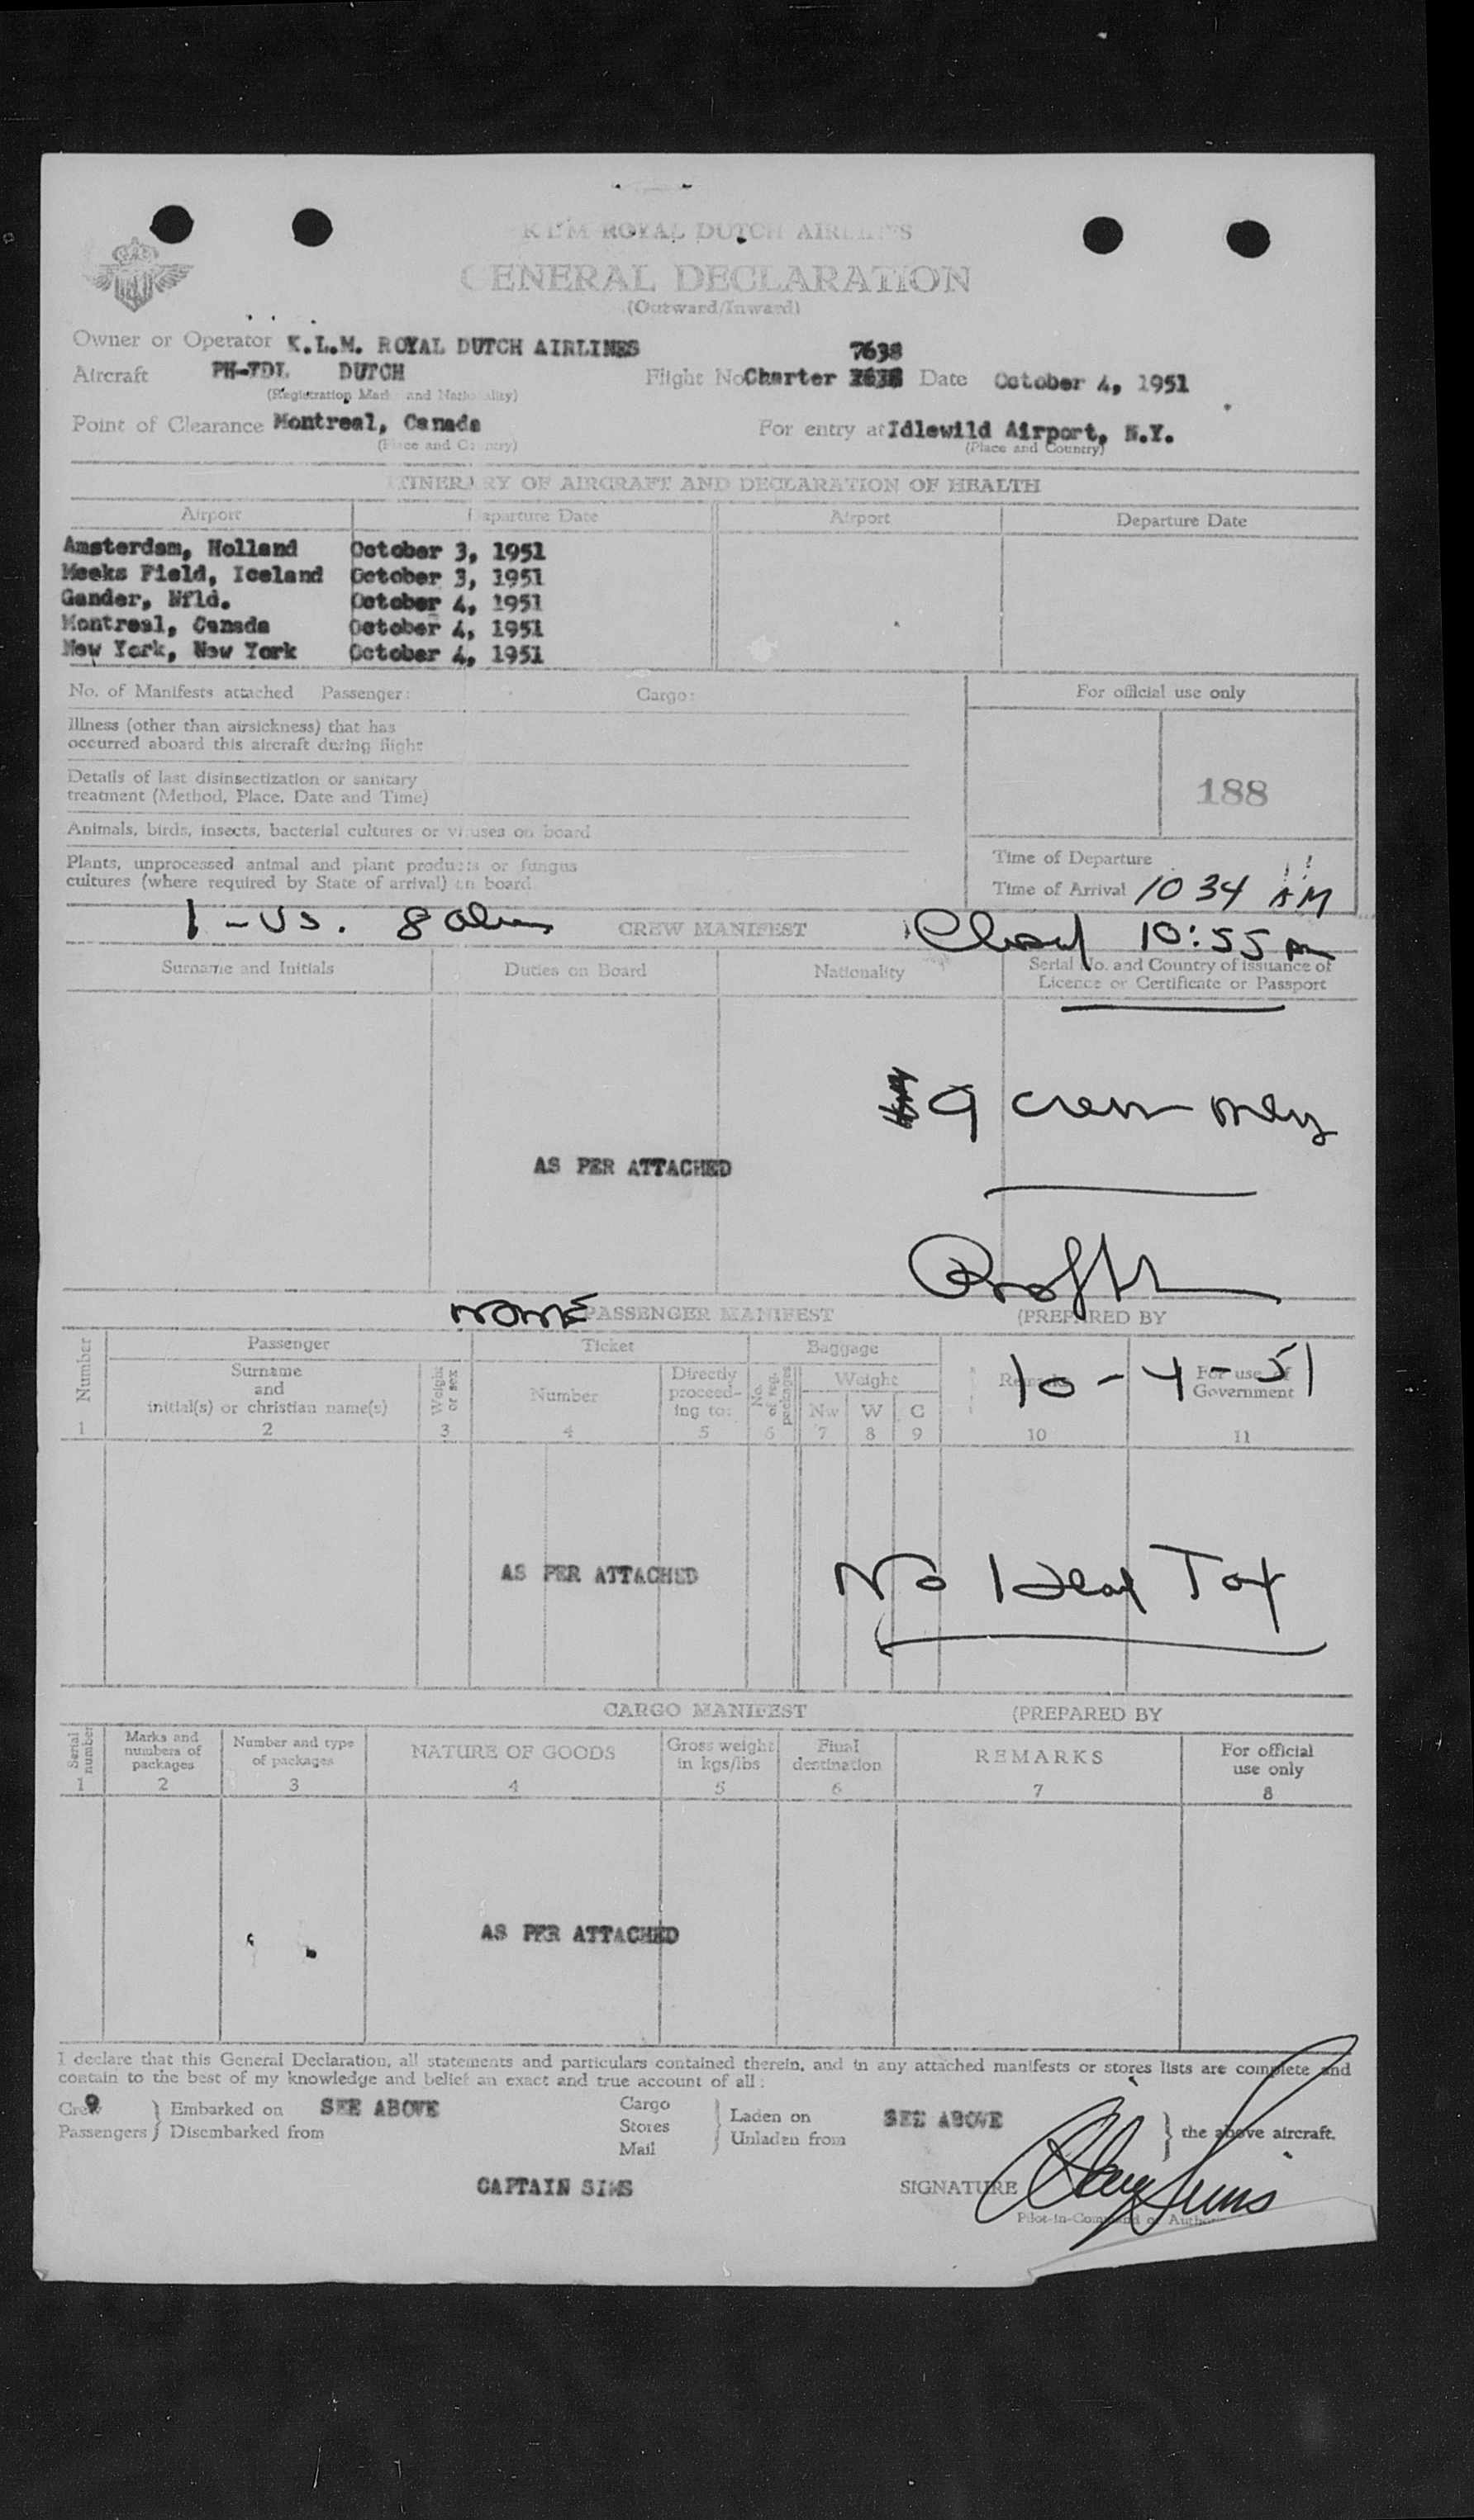 K L M ROYAL DUTCH AIRLINES
GENERAL DECLARATION
(Outward/Inward)
Owner or Operator K.L.M. ROYAL DUTCH AIRLINES
7638
Aircraft PH-TDL DUTCH Flight No Charter Date October 4, 1951
(Registration Mark and Nationality)
Point of Clearance Montreal, Canada For entry at Idlewild Airport, N.Y.
(Place and Country) (Place and Country)
ITINERARY OF AIRCRAFT AND DECLARATION OF HEALTH
Airport Departure Date Airport Departure Date
Amsterdam, Holland October 3, 1951
Meeks Field, Iceland October 3, 1951
Gander, Nfld. October 4, 1951
Montreal, Canada October 4, 1951
New York, New York October 4, 1951
No. of Manifests attached Passenger: Cargo: For official use only
Illness (other than airsickness) that has
occurred aboard this aircraft during flight
Details of last disinsectization or sanitary
treatment (Method, Place, Date and Time)
188
Animals, birds, insects, bacterial cultures or viruses on board
Plants, unprocessed animal and plant products or fungus
cultures (where required by State of arrival) on board
Time of Departure
Time of Arrival 10 34 AM
1 - US. 8 CREW MANIFEST Closed 10:55
Surname and Initials Duties on Board Nationality Serial No. and Country of issuance of
Licence or Certificate or Passport
9 crew only
AS PER ATTACHED
NONE PASSENGER MANIFEST (PREPARED BY
Number Passenger Ticket Baggage
Surname
and
initial(s) or christian name(s)
Weight or sex Number Directly proceed-ing to: No. of reg. packages Weight Remarks For use of Government
10-4-51
Nw W C
1 2 3 4 5 6 7 8 9 10 11
AS PER ATTACHED
No Head Tax
CARGO MANIFEST (PREPARED BY
Serial number Marks and numbers of packages Number and type of packages NATURE OF GOODS Gross weight in kgs/lbs Final destination REMARKS For official use only
1 2 3 4 5 6 7 8
AS PER ATTACHED
I declare that this General Declaration, all statements and particulars contained therein, and in any attached manifests or stores lists are complete and
contain to the best of my knowledge and belief an exact and true account of all:
Crew 9 } Embarked on SEE ABOVE Cargo Laden on SEE ABOVE
Passengers } Disembarked from Stores Unladen from } the above aircraft.
Mail
CAPTAIN SIMS SIGNATURE
Pilot-in-Command or Author